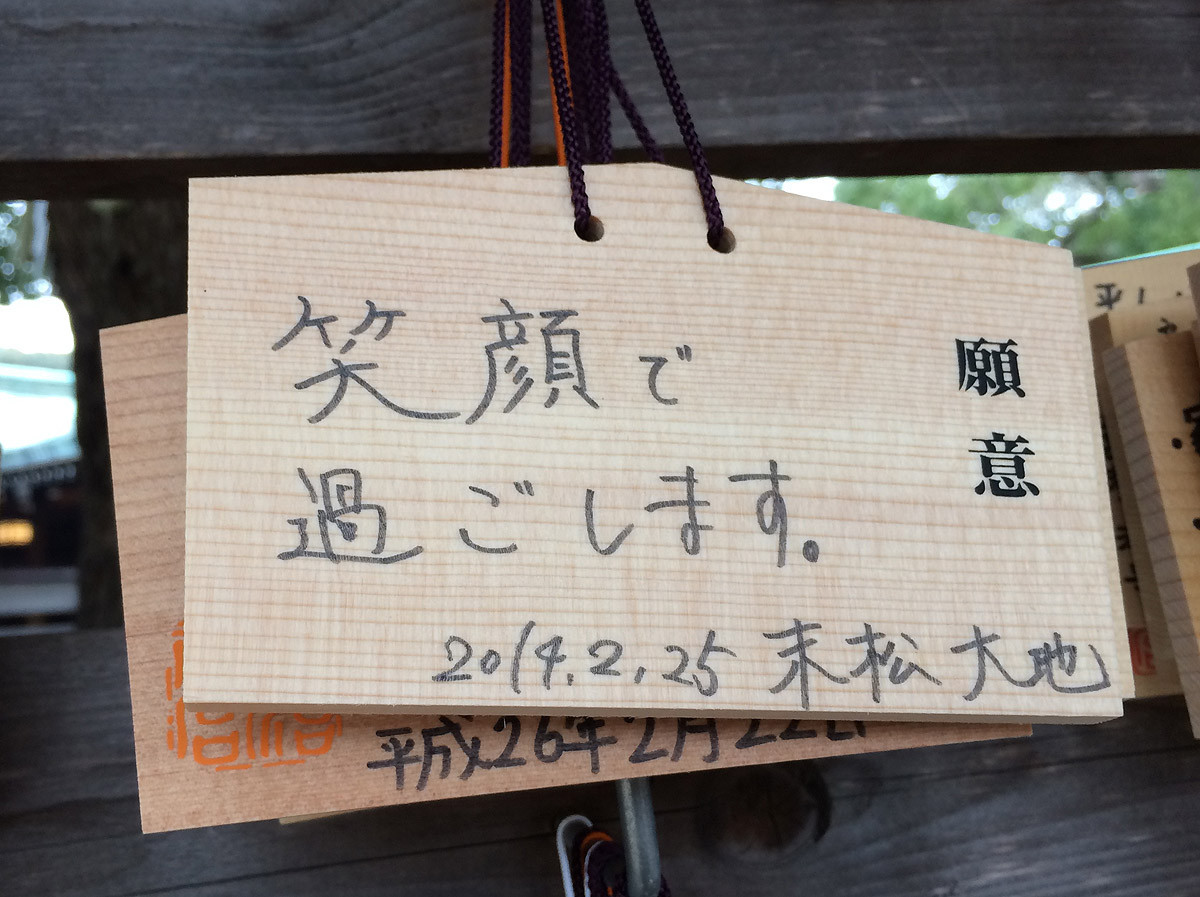 願意
笑顔で
過ごします。
2014.2.25 末松大地
平成26年2月22日